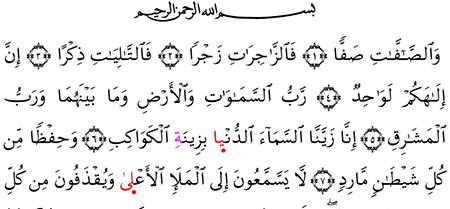 بسم الله الرحمن الرحيم
وَٱلصَّٰٓفَّٰتِ صَفّٗا ﴿١﴾ فَٱلزَّٰجِرَٰتِ زَجۡرٗا ﴿٢﴾ فَٱلتَّٰلِيَٰتِ ذِكۡرًا ﴿٣﴾ إِنَّ
إِلَٰهَكُمۡ لَوَٰحِدٞ ﴿٤﴾ رَّبُّ ٱلسَّمَٰوَٰتِ وَٱلۡأَرۡضِ وَمَا بَيۡنَهُمَا وَرَبُّ
ٱلۡمَشَٰرِقِ ﴿٥﴾ إِنَّا زَيَّنَّا ٱلسَّمَآءَ ٱلدُّنۡيَا بِزِينَةِ ٱلۡكَوَاكِبِ ﴿٦﴾ وَحِفۡظٗا مِّن
كُلِّ شَيۡطَٰنٖ مَّارِدٖ ﴿٧﴾ لَّا يَسَّمَّعُونَ إِلَى ٱلۡمَلَإِ ٱلۡأَعۡلَىٰ وَيُقۡذَفُونَ مِن كُلِّ